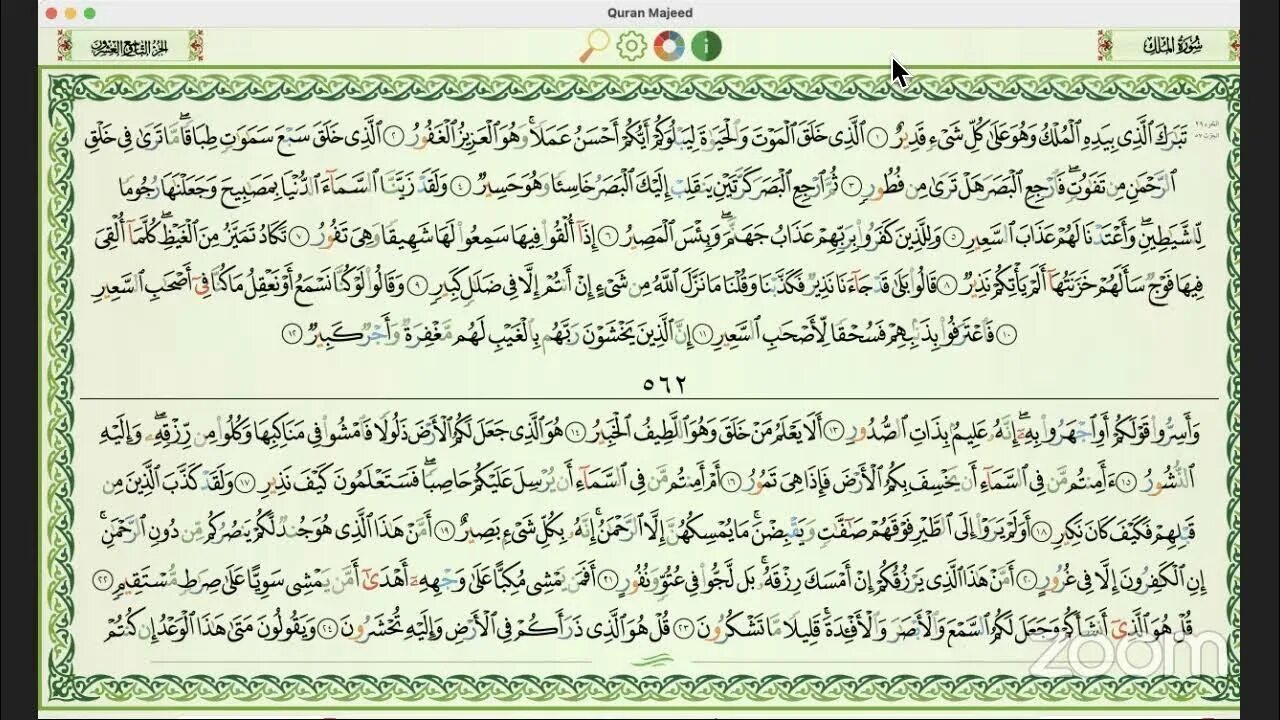 Quran Majeed
سُورَةُ المُلْكِ
الجزء التاسع والعشرون
تَبَٰرَكَ ٱلَّذِى بِيَدِهِ ٱلْمُلْكُ وَهُوَ عَلَىٰ كُلِّ شَىْءٍ قَدِيرٌ ١ ٱلَّذِى خَلَقَ ٱلْمَوْتَ وَٱلْحَيَوٰةَ لِيَبْلُوَكُمْ أَيُّكُمْ أَحْسَنُ عَمَلًا ۚ وَهُوَ ٱلْعَزِيزُ ٱلْغَفُورُ ٢ ٱلَّذِى خَلَقَ سَبْعَ سَمَٰوَٰتٍ طِبَاقًا ۖ مَّا تَرَىٰ فِى خَلْقِ
ٱلرَّحْمَٰنِ مِن تَفَٰوُتٍ ۖ فَٱرْجِعِ ٱلْبَصَرَ هَلْ تَرَىٰ مِن فُطُورٍ ٣ ثُمَّ ٱرْجِعِ ٱلْبَصَرَ كَرَّتَيْنِ يَنقَلِبْ إِلَيْكَ ٱلْبَصَرُ خَاسِئًا وَهُوَ حَسِيرٌ ٤ وَلَقَدْ زَيَّنَّا ٱلسَّمَآءَ ٱلدُّنْيَا بِمَصَٰبِيحَ وَجَعَلْنَٰهَا رُجُومًا
لِّلشَّيَٰطِينِ ۖ وَأَعْتَدْنَا لَهُمْ عَذَابَ ٱلسَّعِيرِ ٥ وَلِلَّذِينَ كَفَرُوا۟ بِرَبِّهِمْ عَذَابُ جَهَنَّمَ ۖ وَبِئْسَ ٱلْمَصِيرُ ٦ إِذَآ أُلْقُوا۟ فِيهَا سَمِعُوا۟ لَهَا شَهِيقًا وَهِىَ تَفُورُ ٧ تَكَادُ تَمَيَّزُ مِنَ ٱلْغَيْظِ ۖ كُلَّمَآ أُلْقِىَ
فِيهَا فَوْجٌ سَأَلَهُمْ خَزَنَتُهَآ أَلَمْ يَأْتِكُمْ نَذِيرٌ ٨ قَالُوا۟ بَلَىٰ قَدْ جَآءَنَا نَذِيرٌ فَكَذَّبْنَا وَقُلْنَا مَا نَزَّلَ ٱللَّهُ مِن شَىْءٍ إِنْ أَنتُمْ إِلَّا فِى ضَلَٰلٍ كَبِيرٍ ٩ وَقَالُوا۟ لَوْ كُنَّا نَسْمَعُ أَوْ نَعْقِلُ مَا كُنَّا فِىٓ أَصْحَٰبِ ٱلسَّعِيرِ
١٠ فَٱعْتَرَفُوا۟ بِذَنۢبِهِمْ فَسُحْقًا لِّأَصْحَٰبِ ٱلسَّعِيرِ ١١ إِنَّ ٱلَّذِينَ يَخْشَوْنَ رَبَّهُم بِٱلْغَيْبِ لَهُم مَّغْفِرَةٌ وَأَجْرٌ كَبِيرٌ ١٢
٥٦٢
وَأَسِرُّوا۟ قَوْلَكُمْ أَوِ ٱجْهَرُوا۟ بِهِۦٓ ۖ إِنَّهُۥ عَلِيمٌۢ بِذَاتِ ٱلصُّدُورِ ١٣ أَلَا يَعْلَمُ مَنْ خَلَقَ وَهُوَ ٱللَّطِيفُ ٱلْخَبِيرُ ١٤ هُوَ ٱلَّذِى جَعَلَ لَكُمُ ٱلْأَرْضَ ذَلُولًا فَٱمْشُوا۟ فِى مَنَاكِبِهَا وَكُلُوا۟ مِن رِّزْقِهِۦ ۖ وَإِلَيْهِ
ٱلنُّشُورُ ١٥ ءَأَمِنتُم مَّن فِى ٱلسَّمَآءِ أَن يَخْسِفَ بِكُمُ ٱلْأَرْضَ فَإِذَا هِىَ تَمُورُ ١٦ أَمْ أَمِنتُم مَّن فِى ٱلسَّمَآءِ أَن يُرْسِلَ عَلَيْكُمْ حَاصِبًا ۖ فَسَتَعْلَمُونَ كَيْفَ نَذِيرِ ١٧ وَلَقَدْ كَذَّبَ ٱلَّذِينَ مِن
قَبْلِهِمْ فَكَيْفَ كَانَ نَكِيرِ ١٨ أَوَلَمْ يَرَوْا۟ إِلَى ٱلطَّيْرِ فَوْقَهُمْ صَٰٓفَّٰتٍ وَيَقْبِضْنَ ۚ مَا يُمْسِكُهُنَّ إِلَّا ٱلرَّحْمَٰنُ ۚ إِنَّهُۥ بِكُلِّ شَىْءٍۭ بَصِيرٌ ١٩ أَمَّنْ هَٰذَا ٱلَّذِى هُوَ جُندٌ لَّكُمْ يَنصُرُكُم مِّن دُونِ ٱلرَّحْمَٰنِ ۚ
إِنِ ٱلْكَٰفِرُونَ إِلَّا فِى غُرُورٍ ٢٠ أَمَّنْ هَٰذَا ٱلَّذِى يَرْزُقُكُمْ إِنْ أَمْسَكَ رِزْقَهُۥ ۚ بَل لَّجُّوا۟ فِى عُتُوٍّ وَنُفُورٍ ٢١ أَفَمَن يَمْشِى مُكِبًّا عَلَىٰ وَجْهِهِۦٓ أَهْدَىٰٓ أَمَّن يَمْشِى سَوِيًّا عَلَىٰ صِرَٰطٍ مُّسْتَقِيمٍ ٢٢
قُلْ هُوَ ٱلَّذِىٓ أَنشَأَكُمْ وَجَعَلَ لَكُمُ ٱلسَّمْعَ وَٱلْأَبْصَٰرَ وَٱلْأَفْـِٔدَةَ ۖ قَلِيلًا مَّا تَشْكُرُونَ ٢٣ قُلْ هُوَ ٱلَّذِى ذَرَأَكُمْ فِى ٱلْأَرْضِ وَإِلَيْهِ تُحْشَرُونَ ٢٤ وَيَقُولُونَ مَتَىٰ هَٰذَا ٱلْوَعْدُ إِن كُنتُمْ
zoom